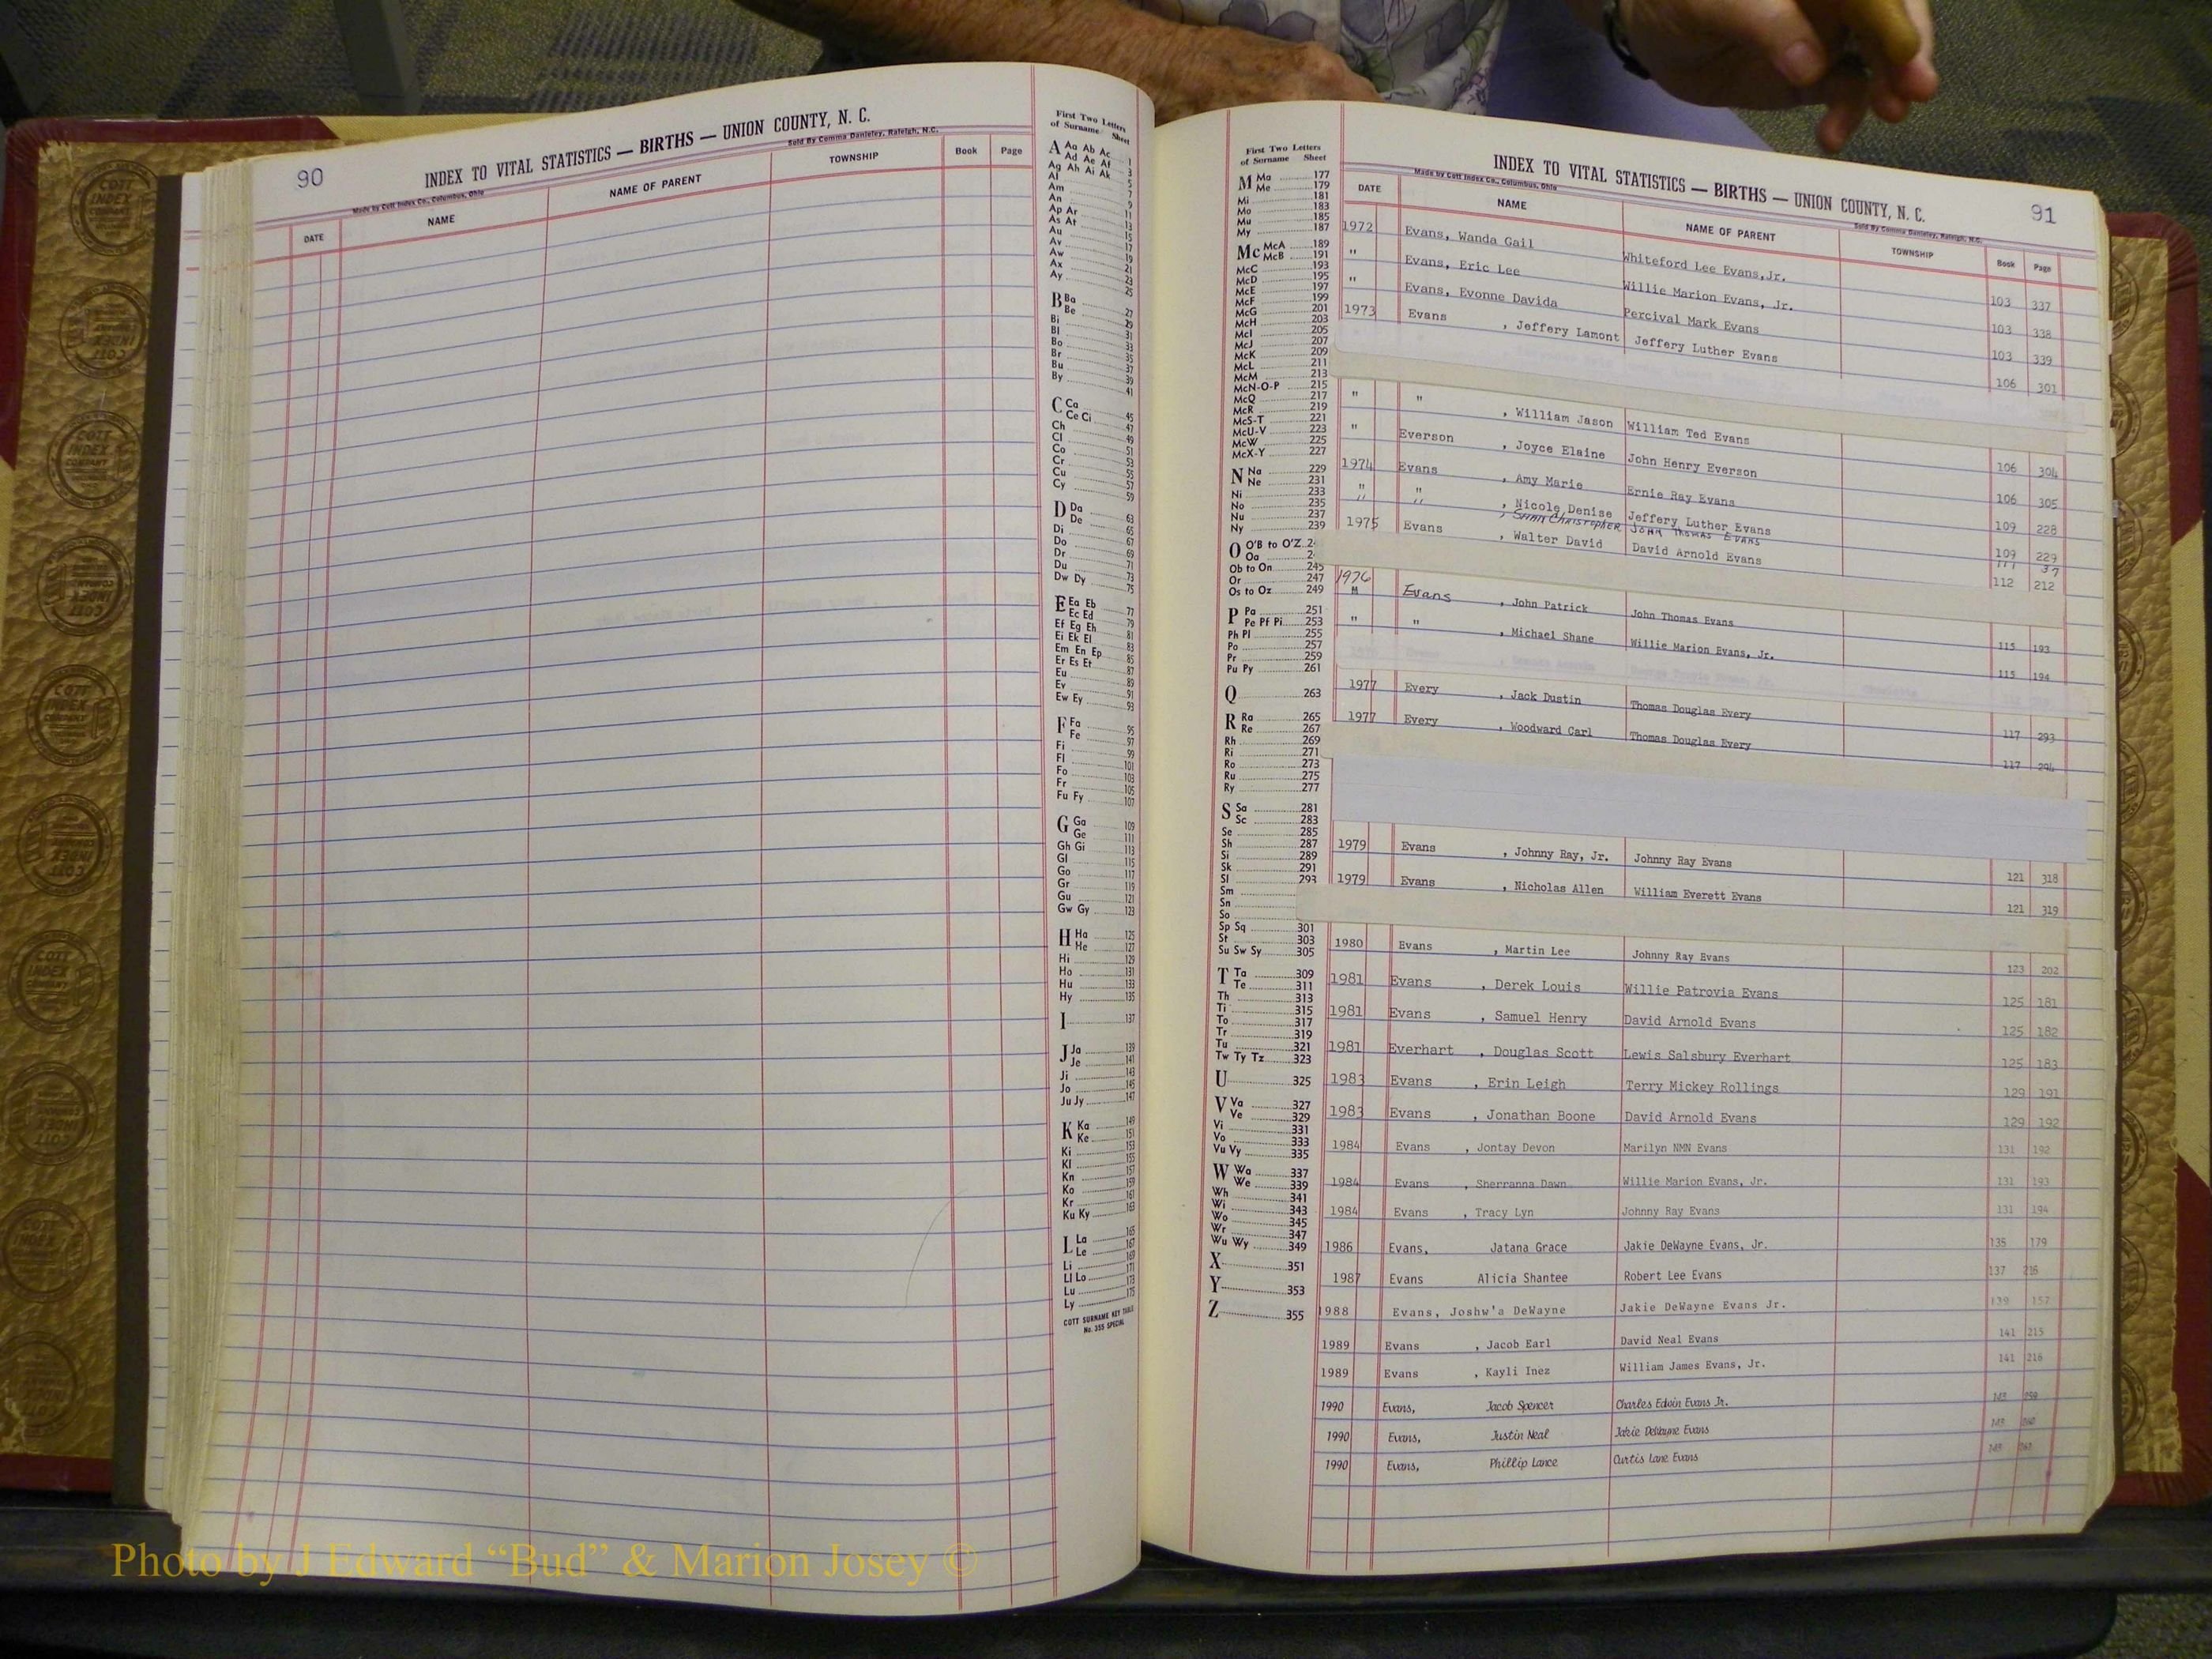 90
INDEX TO VITAL STATISTICS — BIRTHS — UNION COUNTY, N. C.
Made by Cott Index Co., Columbus, Ohio
Sold By Comma Danieley, Raleigh, N.C.
DATE NAME NAME OF PARENT TOWNSHIP Book Page
First Two Letters
of Surname Sheet
A Aa Ab Ac 1
Ad Ae Af 3
Ag Ah Ai Ak 5
Al 7
Am 9
An 11
Ap Ar 13
As At 15
Au 17
Av 19
Aw 21
Ax 23
Ay 25
B Ba 27
Be 29
Bi 31
Bl 33
Bo 35
Br 37
Bu 39
By 41
C Ca 45
Ce Ci 47
Ch 49
Cl 51
Co 53
Cr 55
Cu 57
Cy 59
D Da 63
De 65
Di 67
Do 69
Dr 71
Du 73
Dw Dy 75
E Ea Eb 77
Ec Ed 79
Ef Eg Eh 81
Ei Ek El 83
Em En Ep 85
Er Es Et 87
Eu 89
Ev 91
Ew Ey 93
F Fa 95
Fe 97
Fi 99
Fl 101
Fo 103
Fr 105
Fu Fy 107
G Ga 109
Ge 111
Gh Gi 113
Gl 115
Go 117
Gr 119
Gu 121
Gw Gy 123
H Ha 125
He 127
Hi 129
Ho 131
Hu 133
Hy 135
I 137
J Ja 139
Je 141
Ji 143
Jo 145
Ju Jy 147
K Ka 149
Ke 151
Ki 153
Kl 155
Kn 157
Ko 159
Kr 161
Ku Ky 163
L La 165
Le 167
Li 169
Ll Lo 171
Lu 173
Ly 175
COTT SURNAME KEY TABLE
No. 355 SPECIAL
First Two Letters
of Surname Sheet
M Ma 177
Me 179
Mi 181
Mo 183
Mu 185
My 187
Mc McA 189
McB 191
McC 193
McD 195
McE 197
McF 199
McG 201
McH 203
McI 205
McJ 207
McK 209
McL 211
McM 213
McN-O-P 215
McQ 217
McR 219
McS-T 221
McU-V 223
McW 225
McX-Y 227
N Na 229
Ne 231
Ni 233
No 235
Nu 237
Ny 239
O O'B to O'Z 2
Oa 2
Ob to On 245
Or 247
Os to Oz 249
P Pa 251
Pe Pf Pi 253
Ph Pl 255
Po 257
Pr 259
Pu Py 261
Q 263
R Ra 265
Re 267
Rh 269
Ri 271
Ro 273
Ru 275
Ry 277
S Sa 281
Sc 283
Se 285
Sh 287
Si 289
Sk 291
Sl 293
Sm
Sn
So
Sp Sq 301
St 303
Su Sw Sy 305
T Ta 309
Te 311
Th 313
Ti 315
To 317
Tr 319
Tu 321
Tw Ty Tz 323
U 325
V Va 327
Ve 329
Vi 331
Vo 333
Vu Vy 335
W Wa 337
We 339
Wh 341
Wi 343
Wo 345
Wr 347
Wu Wy 349
X 351
Y 353
Z 355
INDEX TO VITAL STATISTICS — BIRTHS — UNION COUNTY, N. C.
91
Made by Cott Index Co., Columbus, Ohio
Sold By Comma Danieley, Raleigh, N.C.
DATE NAME NAME OF PARENT TOWNSHIP Book Page
1972 Evans, Wanda Gail Whiteford Lee Evans,Jr. 103 337
" Evans, Eric Lee Willie Marion Evans, Jr. 103 338
" Evans, Evonne Davida Percival Mark Evans 103 339
1973 Evans , Jeffery Lamont Jeffery Luther Evans 106 301
" " , William Jason William Ted Evans 106 304
" Everson , Joyce Elaine John Henry Everson 106 305
1974 Evans , Amy Marie Ernie Ray Evans 109 228
" " , Nicole Denise Jeffery Luther Evans 109 229
" " , Christopher John Thomas Evans 111 37
1975 Evans , Walter David David Arnold Evans 112 212
1976 Evans , John Patrick John Thomas Evans 115 193
" " , Michael Shane Willie Marion Evans, Jr. 115 194
1977 Every , Jack Dustin Thomas Douglas Every 117 293
1977 Every , Woodward Carl Thomas Douglas Every 117 294
1979 Evans , Johnny Ray, Jr. Johnny Ray Evans 121 318
1979 Evans , Nicholas Allen William Everett Evans 121 319
1980 Evans , Martin Lee Johnny Ray Evans 123 202
1981 Evans , Derek Louis Willie Patrovia Evans 125 181
1981 Evans , Samuel Henry David Arnold Evans 125 182
1981 Everhart , Douglas Scott Lewis Salsbury Everhart 125 183
1983 Evans , Erin Leigh Terry Mickey Rollings 129 191
1983 Evans , Jonathan Boone David Arnold Evans 129 192
1984 Evans , Jontay Devon Marilyn NMN Evans 131 192
1984 Evans , Sherranna Dawn Willie Marion Evans, Jr. 131 193
1984 Evans , Tracy Lyn Johnny Ray Evans 131 194
1986 Evans, Jatana Grace Jakie DeWayne Evans, Jr. 135 179
1987 Evans Alicia Shantee Robert Lee Evans 137 216
1988 Evans, Joshw'a DeWayne Jakie DeWayne Evans Jr. 139 157
1989 Evans , Jacob Earl David Neal Evans 141 215
1989 Evans , Kayli Inez William James Evans, Jr. 141 216
1990 Evans, Jacob Spencer Charles Edwin Evans Jr. 143 259
1990 Evans, Justin Neal Jakie DeWayne Evans 143 260
1990 Evans, Phillip Lance Curtis Lane Evans 143 261
Photo by J Edward “Bud” & Marion Josey ©